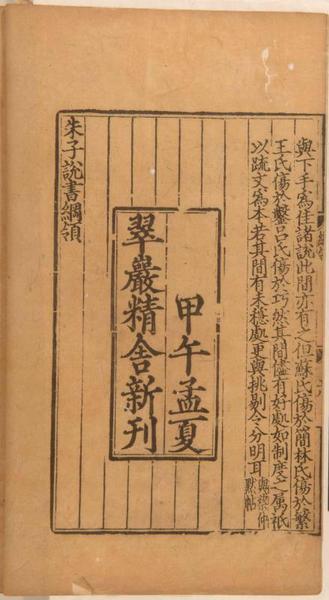 與下手為佳諸說此間亦有之但蘇氏傷於簡林氏傷於繁
王氏傷於鑿呂氏傷於巧然其間儘有好處如制度之属祇
以疏文為本若其間有未穩處更與挑剔令分明耳
與蔡仲
默帖
甲午孟夏
翠巖精舍新刊
朱子說書綱領